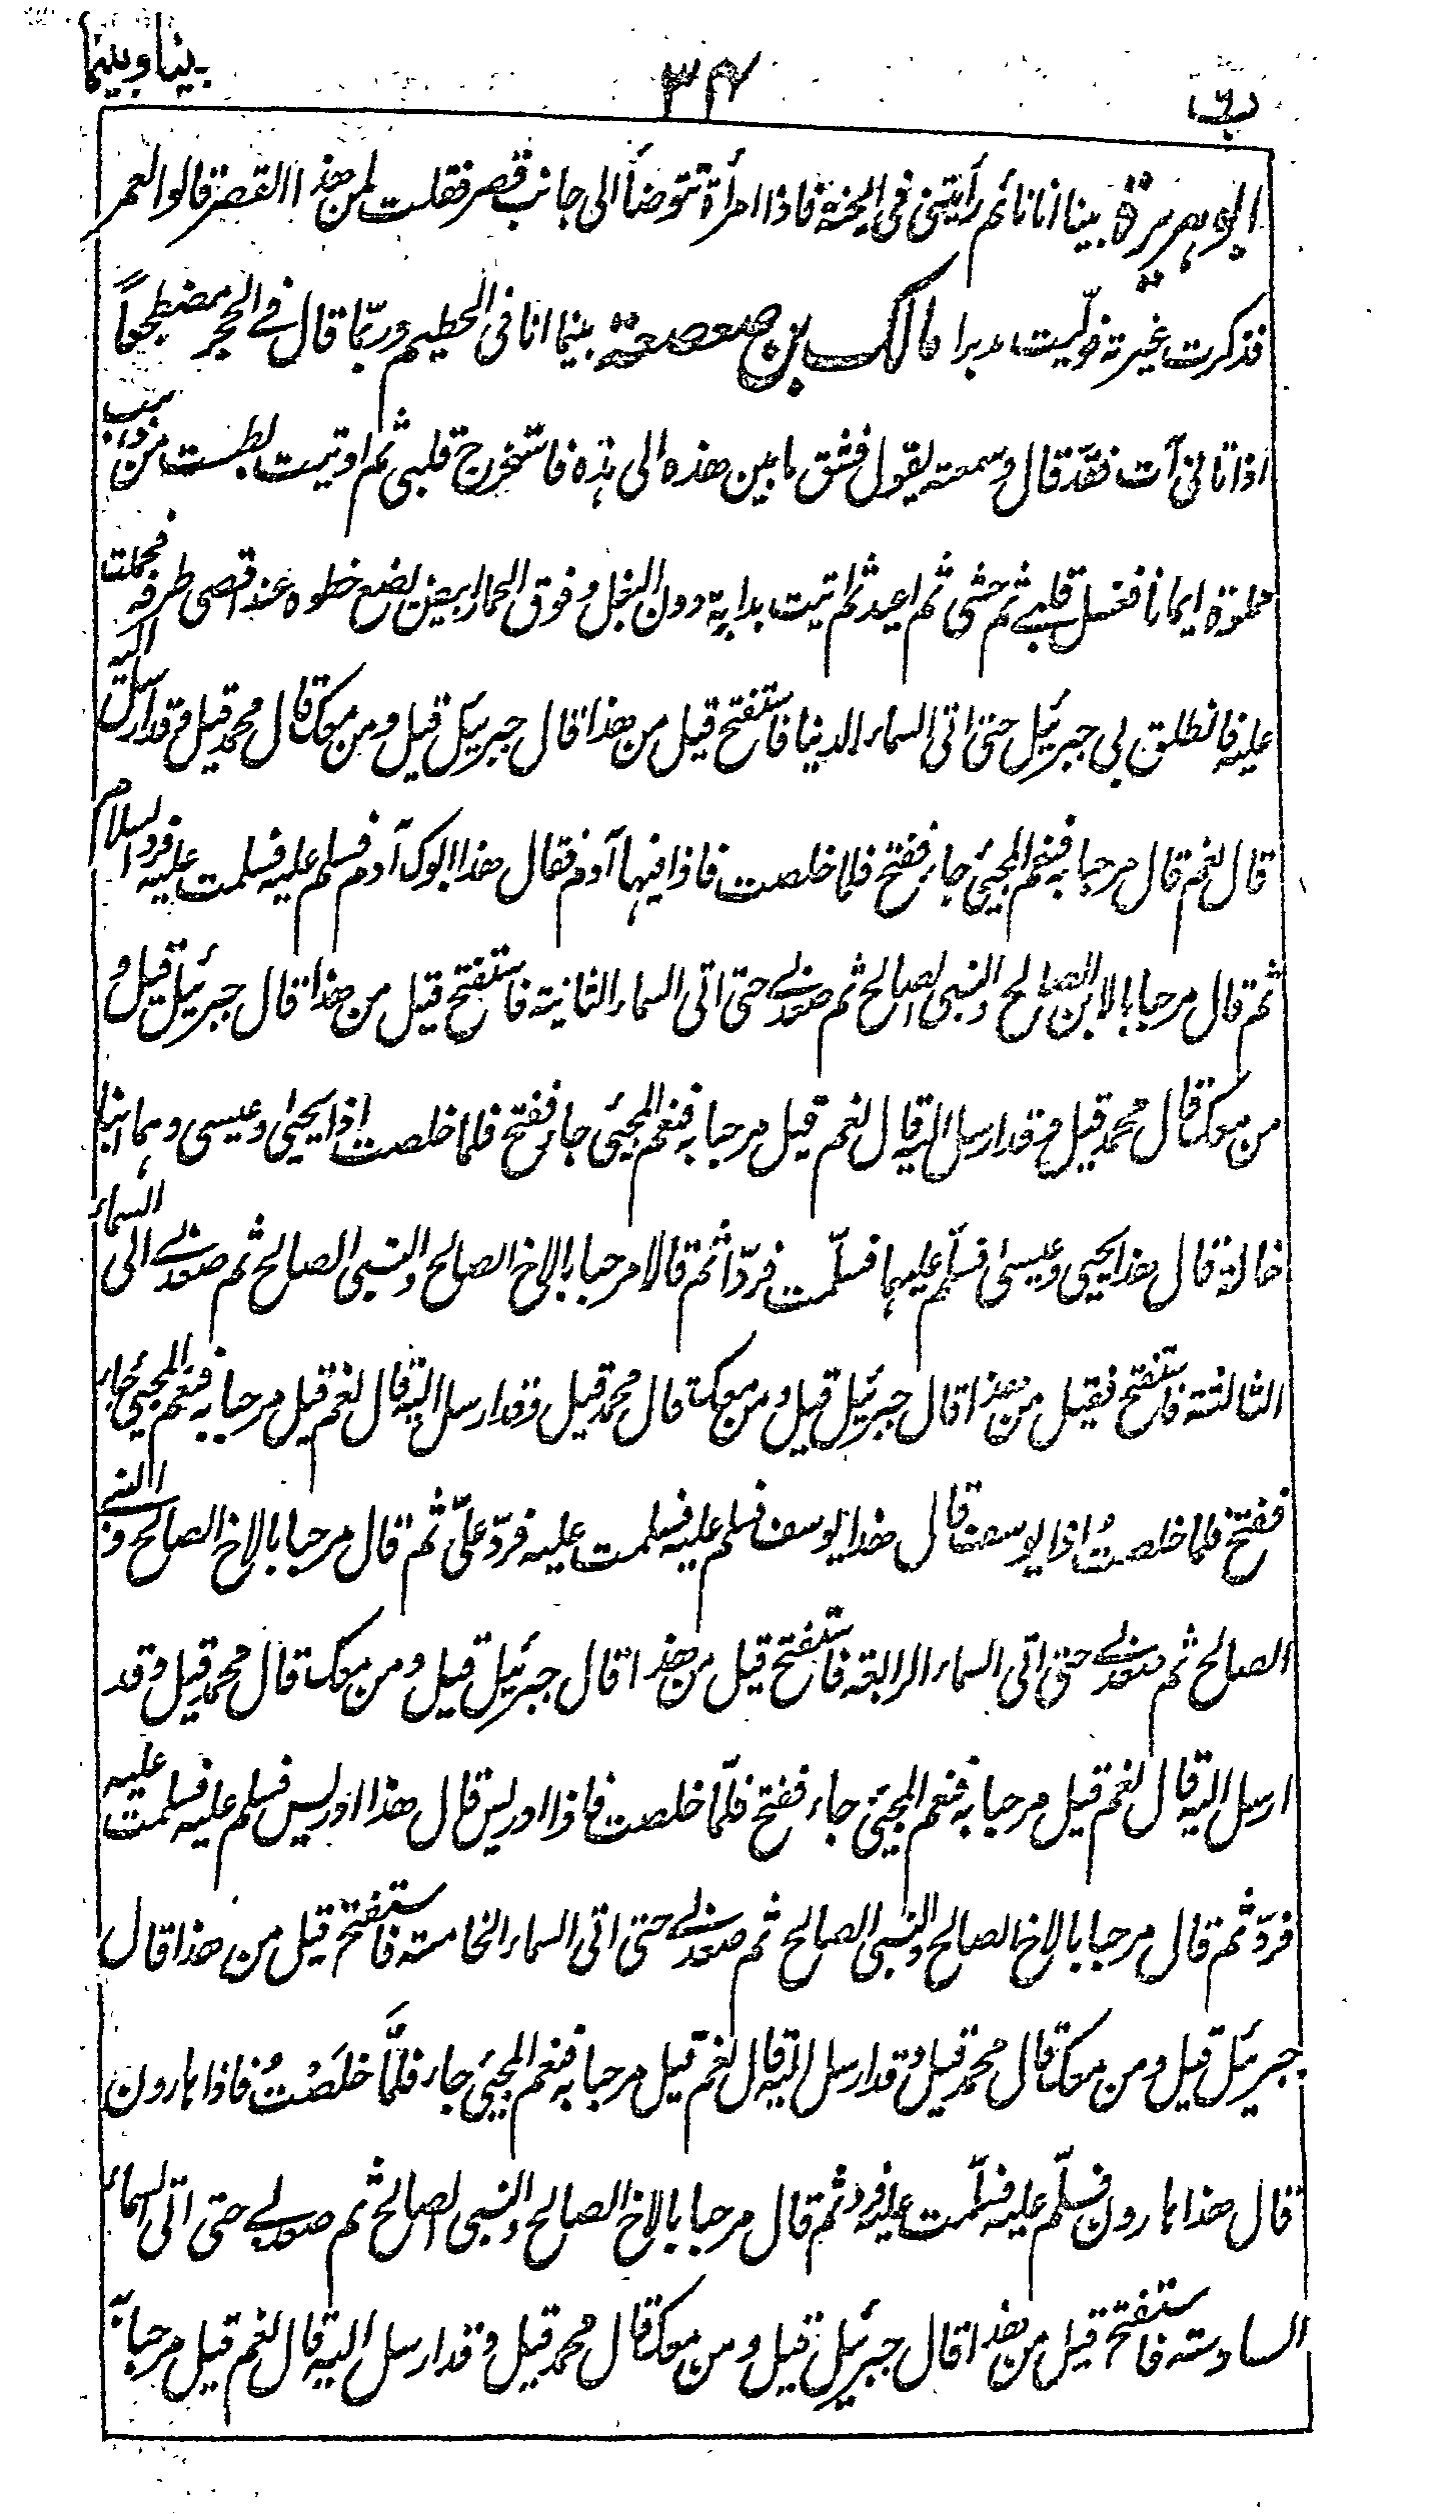 بی ۳۴ بينا وبينما
ابو ہريرة بينا انا نائم رأيتنى فى الجنة فاذا امرأة تتوضأ الى جانب قصر فقلت لمن هذا القصر قالوا لعمر
فذكرت غيرته فوليت مدبرا مالك بن صعصعة بينما انا فى الحطيم وربّما قال فے الحجر مضطجعاً
اذ اتانى آت فقدّ قال وسمعته يقول فشق ما بين هذه الى ہذه فاستخرج قلبى ثم اوتيت بطست من ذهب
مملوة ايمانا فغسل قلبے ثم حشى ثم اعيد ثم اتيت بدابة دون البغل وفوق الحمار ابيض يضع خطوه عند اقصى طرفه فحملت
عليه فانطلق بى جبرئيل حتى اتى السماء الدنيا فاستفتح قيل من هذا قال جبرئيل قيل ومن معك قال محمد قيل وقد ارسل اليه
قال نعم قال مرحبا به فنعم المجئ جاء ففتح فلما خلصت فاذا فيها آدم فقال هذا ابوك آدم فسلم عليه فسلمت عليه فرد السلام
ثم قال مرحبا بالابن الصالح والنبى الصالح ثم صعد بے حتى اتى السماء الثانية فاستفتح قيل من هذا قال جبرئيل قيل و
من معك قال محمد قيل وقد ارسل اليه قال نعم قيل مرحبا به فنعم المجئ جاء ففتح فلما خلصت اذا يحيى وعيسى وہما ابنا
خالة قال هذا يحيى وعيسى فسلّم عليہما فسلّمت فردّا ثم قالا مرحبا بالاخ الصالح والنبى الصالح ثم صعد بے الى السماء
الثالثة فاستفتح فقيل من هذا قال جبرئيل قيل ومن معك قال محمد قيل وقد ارسل اليه قال نعم قيل مرحبا به فنعم المجئ جاء
ففتح فلما خلصتُ اذا يوسف قال هذا يوسف فسلم عليه فسلمت عليه فردّ علىّ ثم قال مرحبا بالاخ الصالح والنبے
الصالح ثم صعد بے حتى اتى السماء الرابعة فاستفتح قيل من هذا قال جبرئيل قيل ومن معك قال محمد قيل وقد
ارسل اليه قال نعم قيل مرحبا به فنعم المجئ جاء ففتح فلمّا خلصت فاذا ادريس قال هذا ادريس فسلم عليه فسلمت عليه
فردّ ثم قال مرحبا بالاخ الصالح والنبى الصالح ثم صعد بے حتى اتى السماء الخامسة فاستفتح قيل من هذا قال
جبرئيل قيل ومن معك قال محمد قيل وقد ارسل اليه قال نعم قيل مرحبا به فنعم المجئ جاء فلمَّا خلَصْتُ فاذا ہارون
قال هذا ہارون فسلّم عليه فسلّمت عليه فرد ثم قال مرحبا بالاخ الصالح والنبى الصالح ثم صعد بے حتى اتى السماء
السادسة فاستفتح قيل من هذا قال جبرئيل قيل ومن معك قال محمد قيل وقد ارسل اليه قال نعم قيل مرحبا به